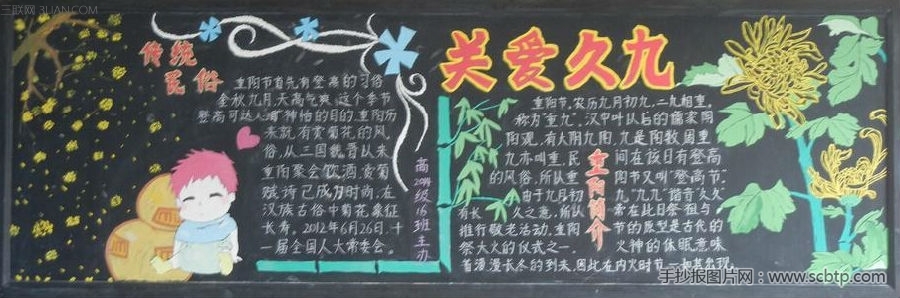 三联网 3LIAN.COM
传统
民俗
重阳节首先有登高的习俗
金秋九月,天高气爽,这个季节
登高可达
怡的目的.重阳历
来就有赏菊花的风
俗,从三国魏晋以来
重阳聚会饮酒,赏菊
赋诗已成为时尚.在
汉族古俗中菊花象征
长寿。2012年6月26日.十
一届全国人大常委会。
高2014级16班主办
关爱久九
重阳节,农历九月初九,二九相重,
称为"重九",汉中叶以后的儒家阴
阳观,有六阴九阳.九是阳数固重
九亦叫重 民间在该日有登高
的风俗,所从重阳节又叫"登高节"。
由于九月初九"九九"谐音久久
有长久之意,所以常在此日祭祖与
推行敬老活动,重阳节的原型是古代的
祭大火的仪式之一 火神的休眠意味
着漫漫长冬的到来,因此在内火时节
重阳简介
手抄报图片网:www.scbtp.com